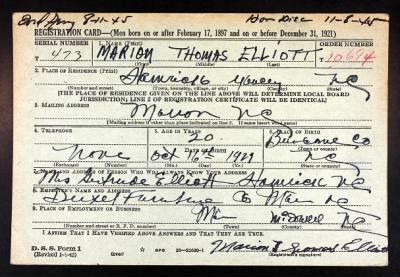 Hon Disc 11-8-45
REGISTRATION CARD—(Men born on or after February 17, 1897 and on or before December 31, 1921)
SERIAL NUMBER 1. NAME (Print) ORDER NUMBER
T 473 MARION THOMAS ELLIOTT 10694
(First) (Middle) (Last)
2. PLACE OF RESIDENCE (Print)
Hamrick Yancey NC
(Number and street) (Town, township, village, or city) (County) (State)
[THE PLACE OF RESIDENCE GIVEN ON THE LINE ABOVE WILL DETERMINE LOCAL BOARD
JURISDICTION; LINE 2 OF REGISTRATION CERTIFICATE WILL BE IDENTICAL]
3. MAILING ADDRESS
Marion NC
[Mailing address if other than place indicated on line 2. If same insert word same]
4. TELEPHONE 5. AGE IN YEARS 6. PLACE OF BIRTH
20 Buncombe Co
DATE OF BIRTH
None Oct 16th 1921 NC
(Exchange) (Number) (Mo.) (Day) (Yr.) (State or country)
7. NAME AND ADDRESS OF PERSON WHO WILL ALWAYS KNOW YOUR ADDRESS
Mrs Gertrude Elliott Hamrick NC
8. EMPLOYER'S NAME AND ADDRESS
Drexel Furniture Co Marion NC
9. PLACE OF EMPLOYMENT OR BUSINESS
McDowell NC
(Number and street or R. F. D. number) (Town) (County) (State)
I AFFIRM THAT I HAVE VERIFIED ABOVE ANSWERS AND THAT THEY ARE TRUE.
D. S. S. Form 1
(Revised 1-1-42) (over) Marion Thomas Elliott